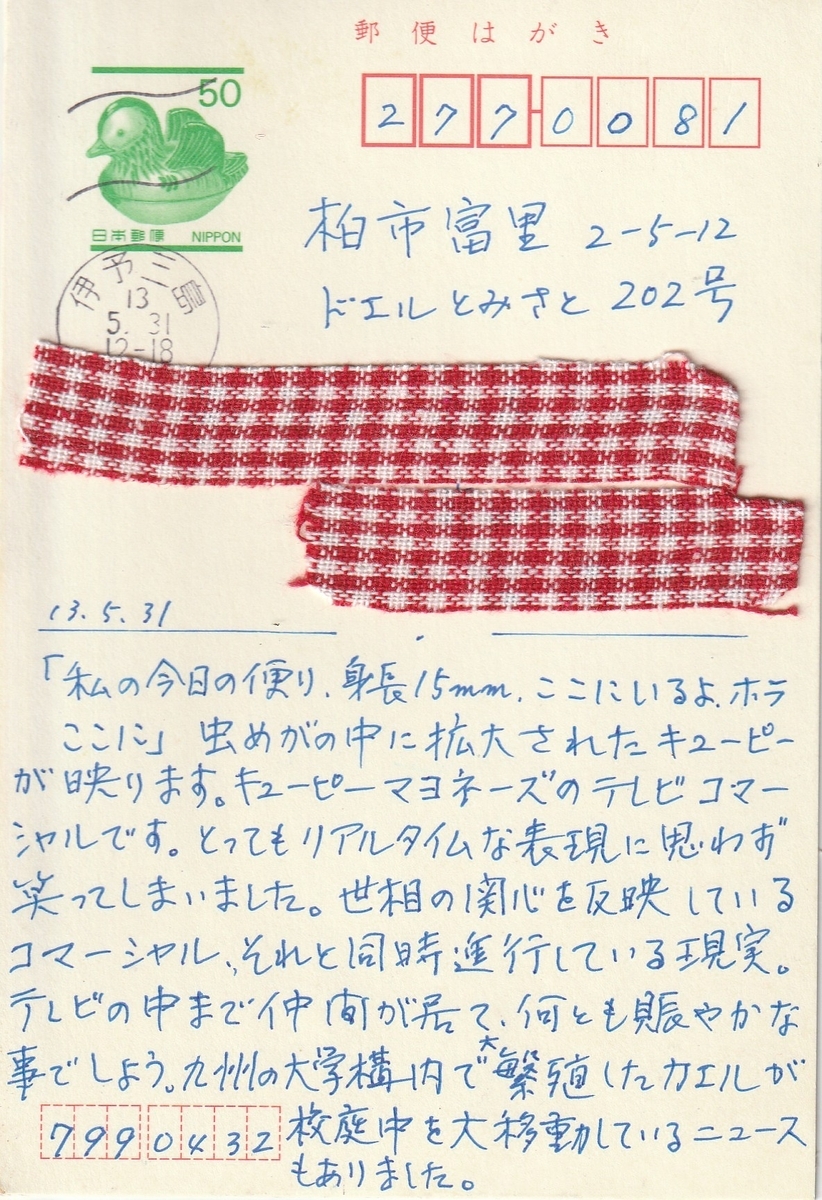 郵便はがき
50
日本郵便 NIPPON
277-0081
柏市富里 2-5-12
ドエルとみさと 202号
伊予三島
13
5.31
12-18
13.5.31
「私の今日の便り、身長15mm、ここにいるよ、ホラ
ここに」虫めがの中に拡大されたキューピー
が映ります。キューピーマヨネーズのテレビコマー
シャルです。とってもリアルタイムな表現に思わず
笑ってしまいました。世相の関心を反映している
コマーシャル、それと同時進行している現実。
テレビの中まで仲間が居て、何とも賑やかな
事でしょう。九州の大学構内で大繁殖したカエルが
校庭中を大移動しているニュース
もありました。
7990432